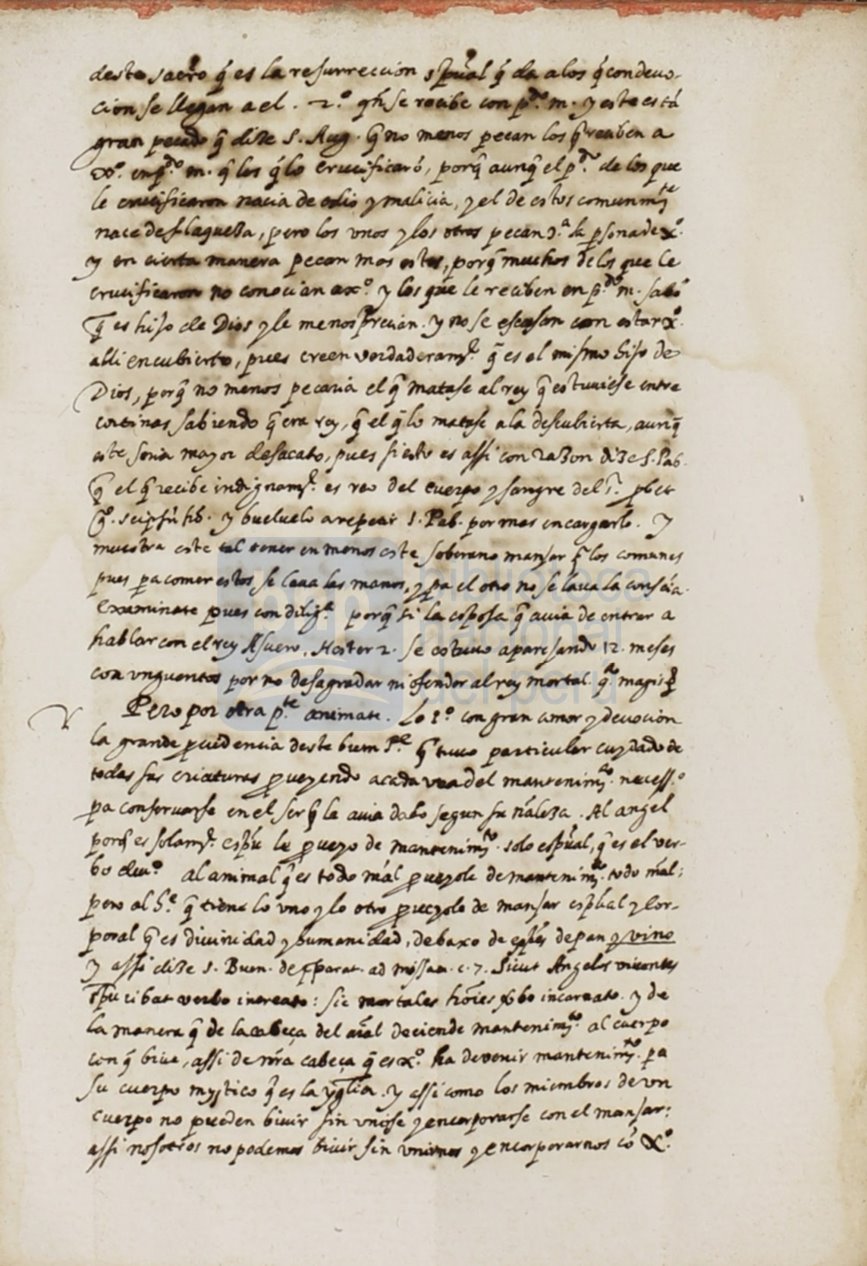 deste sacrõ q̃ es la resurreccion spũal q̃ da a los q̃ con devo-
cion se llegan a el. 2.º qñ se recibe con p.do m. y este está
gran pecado q̃ dize S. Aug. q̃ no menos pecan los q̃ reciben a
xº. en p.do m. q̃ los q̃ lo crucificarõ, porq̃ aunq̃ el p.do de los que
le crucificaron nacia de odio y malicia, y el de estos comunm.te
nace de flaqueza, pero los vnos y los otros pecan 9.ª la psona de xº.
y en cierta manera pecan mas estos, porq̃ muchos de los que le
crucificaron no conocian a xº. y los que le reciben en p.do m. sabẽ
q̃ es hijo de Dios y le menosprecian. y no se escusan con estar xº.
alli encubierto, pues creen verdaderam.te q̃ es el mismo hijo de
Dios, porq̃ no menos pecaria el q̃ matase al rey q̃ estuuiese entre
cortinas sabiendo q̃ era rey, q̃ el q̃ lo matase a la descubierta, aunq̃
este seria mayor desacato, pues si esto es assi con razon dize S. Pab.
q̃ el q̃ recibe indignam.te es reo del cuerpo y sangre del S.r
y bueluelo a repetir S. Pab. por mas encargarlo. Y
muestra este tal tener en menos este soberano manjar q̃ los comunes
pues pa comer estos se laua las manos, y pa el otro no se laua la consciã.
Examinate pues con dilig.ª porq̃ si la esposa q̃ auia de entrar a
hablar con el rey Asuero, Hester 2. se estuuo aparejando 12. meses
con vnguentos por no desagradar ni ofender al rey mortal. q.to magis &
Pero por otra p.te animate. Lo 1.º con gran amor y devocion
la grande prouidencia deste buen P.e q̃ tuuo particular cuydado de
todas sus criaturas proueyendo a cada vna del mantenim.to necess.º
pa conseruarse en el ser q̃ le auia dado segun su ñaleza. Al angel
porq̃ es solam.te espũ le proueyo de mantenim.to solo espũal, q̃ es el ver-
bo diuº al animal q̃ es todo m̃al proueyole de mantenim.to todo m̃al;
pero al h.e q̃ tiene lo vno y lo otro proueyole de manjar espũal y cor-
poral q̃ es diuinidad y humanidad, debaxo de espẽs de pan y vino
y assi dize S. Buen. de p̃parat. ad missam. c. 7. Sicut Angelus viventes
spũ cibat verbo increato: sic mortales hoĩes ṽbo incarnato. y de
la manera q̃ de la cabeça del añal deciende mantenim.to al cuerpo
con q̃ biue, assi de nr̃a cabeça q̃ es xº. ha de venir mantenim.to pa
su cuerpo mystico q̃ es la yglia. y assi como los miembros de vn
cuerpo no pueden biuir sin vnirse y encorporarse con el manjar:
assi nosotros no podemos biuir sin vnirnos y encorporarnos cõ xº.
biblioteca
nacional
del perú